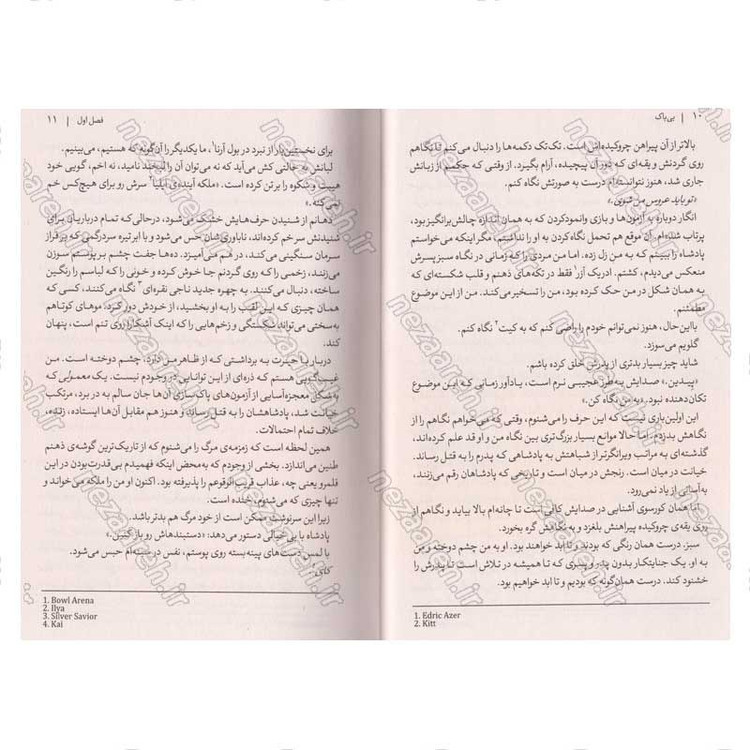 ۱۰ | بی‌باک
بالاتر از آن پیراهن چروکیده‌اش است. تک‌تک دکمه‌ها را دنبال می‌کنم تا نگاهم
روی گردنش و یقه‌ای که دور آن پیچیده، آرام بگیرد. از وقتی که حکمم از زبانش
جاری شد، هنوز نتوانسته‌ام درست به صورتش نگاه کنم.
«تو باید عروس من شوی.»
انگار دوباره به آزمون‌ها و بازی وانمودکردن که به همان اندازه چالش‌برانگیز بود،
پرتاب شده‌ام. آن موقع هم تحمل نگاه کردن به او را نداشتم، مگر اینکه می‌خواستم
پادشاه را ببینم که به من زل زده. اما من مردی را که زمانی در نگاه سبز پسرش
منعکس می‌دیدم، کشتم. ادریک آزر۱ فقط در تکه‌های ذهنم و قلب شکسته‌ای که
به همان شکل در من حک کرده بود، من را تسخیر می‌کند. من از این موضوع
مطمئنم.
بااین‌حال، هنوز نمی‌توانم خودم را راضی کنم که به کیت۲ نگاه کنم.
گلویم می‌سوزد.
شاید چیز بسیار بدتری از پدرش خلق کرده باشم.
«پیدین.» صدایش به‌طرز عجیبی نرم است، یادآور زمانی که این موضوع
تکان‌دهنده نبود. «به من نگاه کن.»
این اولین‌باری نیست که این حرف را می‌شنوم، وقتی که می‌خواهم نگاهم را از
نگاهش بدزدم. اما حالا موانع بسیار بزرگ‌تری بین نگاه من و او قد علم کرده‌اند،
گذشته‌ای به مراتب ویرانگرتر از شباهتش به پادشاهی که پدرم را به قتل رساند.
خیانت در میان است. رنجش در میان است و تاریخی که پادشاهان رقم می‌زنند،
به‌آسانی از یاد نمی‌رود.
اما همان کورسوی آشنایی در صدایش کافی است تا چانه‌ام بالا بیاید و نگاهم از
روی یقه‌ی چروکیده پیراهنش بلغزد و به نگاهش گره بخورد.
سبز. درست همان رنگی که بودند و تا ابد خواهند بود. او به من چشم دوخته و من
به او. یک جنایتکار بدون پدر و پسری که تا همیشه در تلاش است تا پدرش را
خشنود کند. درست همان‌گونه که بودیم و تا ابد خواهیم بود.
1. Edric Azer
2. Kitt
فصل اول | ۱۱
برای نخستین‌بار از نبرد در بول آرنا۱، ما یکدیگر را آن‌گونه که هستیم، می‌بینیم.
لبانش به حالتی کش می‌آید که نه می‌توان آن را لبخند نامید، نه اخم، گویی خود
هیبت و شکوه را بر تن کرده است. «ملکه آینده‌ی ایلیا۲ سرش رو برای هیچ‌کس خم
نمی‌کنه.»
دهانم از شنیدن حرف‌هایش خشک می‌شود، درحالی‌که تمام درباریان برای
شنیدنش سر خم کرده‌اند، ناباوری‌شان حس می‌شود و با ابر تیره سردرگمی که بر فراز
سرمان سنگینی می‌کند، در هم می‌آمیزد. ده‌ها جفت چشم بر پوستم سوزن
می‌زنند، زخمی را که روی گردنم جا خوش کرده و خونی را که لباسم را رنگین
ساخته، دنبال می‌کنند. به چهره جدید ناجی نقره‌ای۳ نگاه می‌کنند، کسی که
همان چیزی که این لقب را به او بخشید، از خودش دور کرد. موهای کوتاهم
به‌سختی می‌تواند شکستگی و زخم‌هایی را که اینک آشکارا روی تنم است، پنهان
کند.
دربار با حیرت به برداشتی که از ظاهر من دارد، چشم دوخته است. من
غیب‌گویی هستم که ذره‌ای از این توانایی در وجودم نیست. یک معمولی که
به‌شکل معجزه‌آسایی از آزمون‌های پاک‌سازی آن‌ها جان سالم به در برد، مرتکب
خیانت شد، پادشاهشان را به قتل رساند و هنوز هم مقابل آن‌ها ایستاده، زنده،
خلاف تمام احتمالات.
همین لحظه است که زمزمه‌ی مرگ را می‌شنوم که از تاریک‌ترین گوشه‌ی ذهنم
طنین می‌اندازد. بخشی از وجودم که به‌محض اینکه فهمیدم بی‌قدرت بودن در این
قلمرو یعنی چه، عذاب قریب‌الوقوعم را پذیرفته بود. اکنون او من را ملکه می‌خواند و
تنها چیزی که می‌شنوم، خنده است.
زیرا این سرنوشت ممکن است از خود مرگ هم بدتر باشد.
پادشاه با بی‌خیالی دستور می‌دهد: «دستبندهاش رو باز کنین.»
با لمس دست‌های پینه‌بسته روی پوستم، نفس در سینه‌ام حبس می‌شود.
کای۴.
1. Bowl Arena
2. Ilya
3. Silver Savior
4. Kai
nezaareh.ir